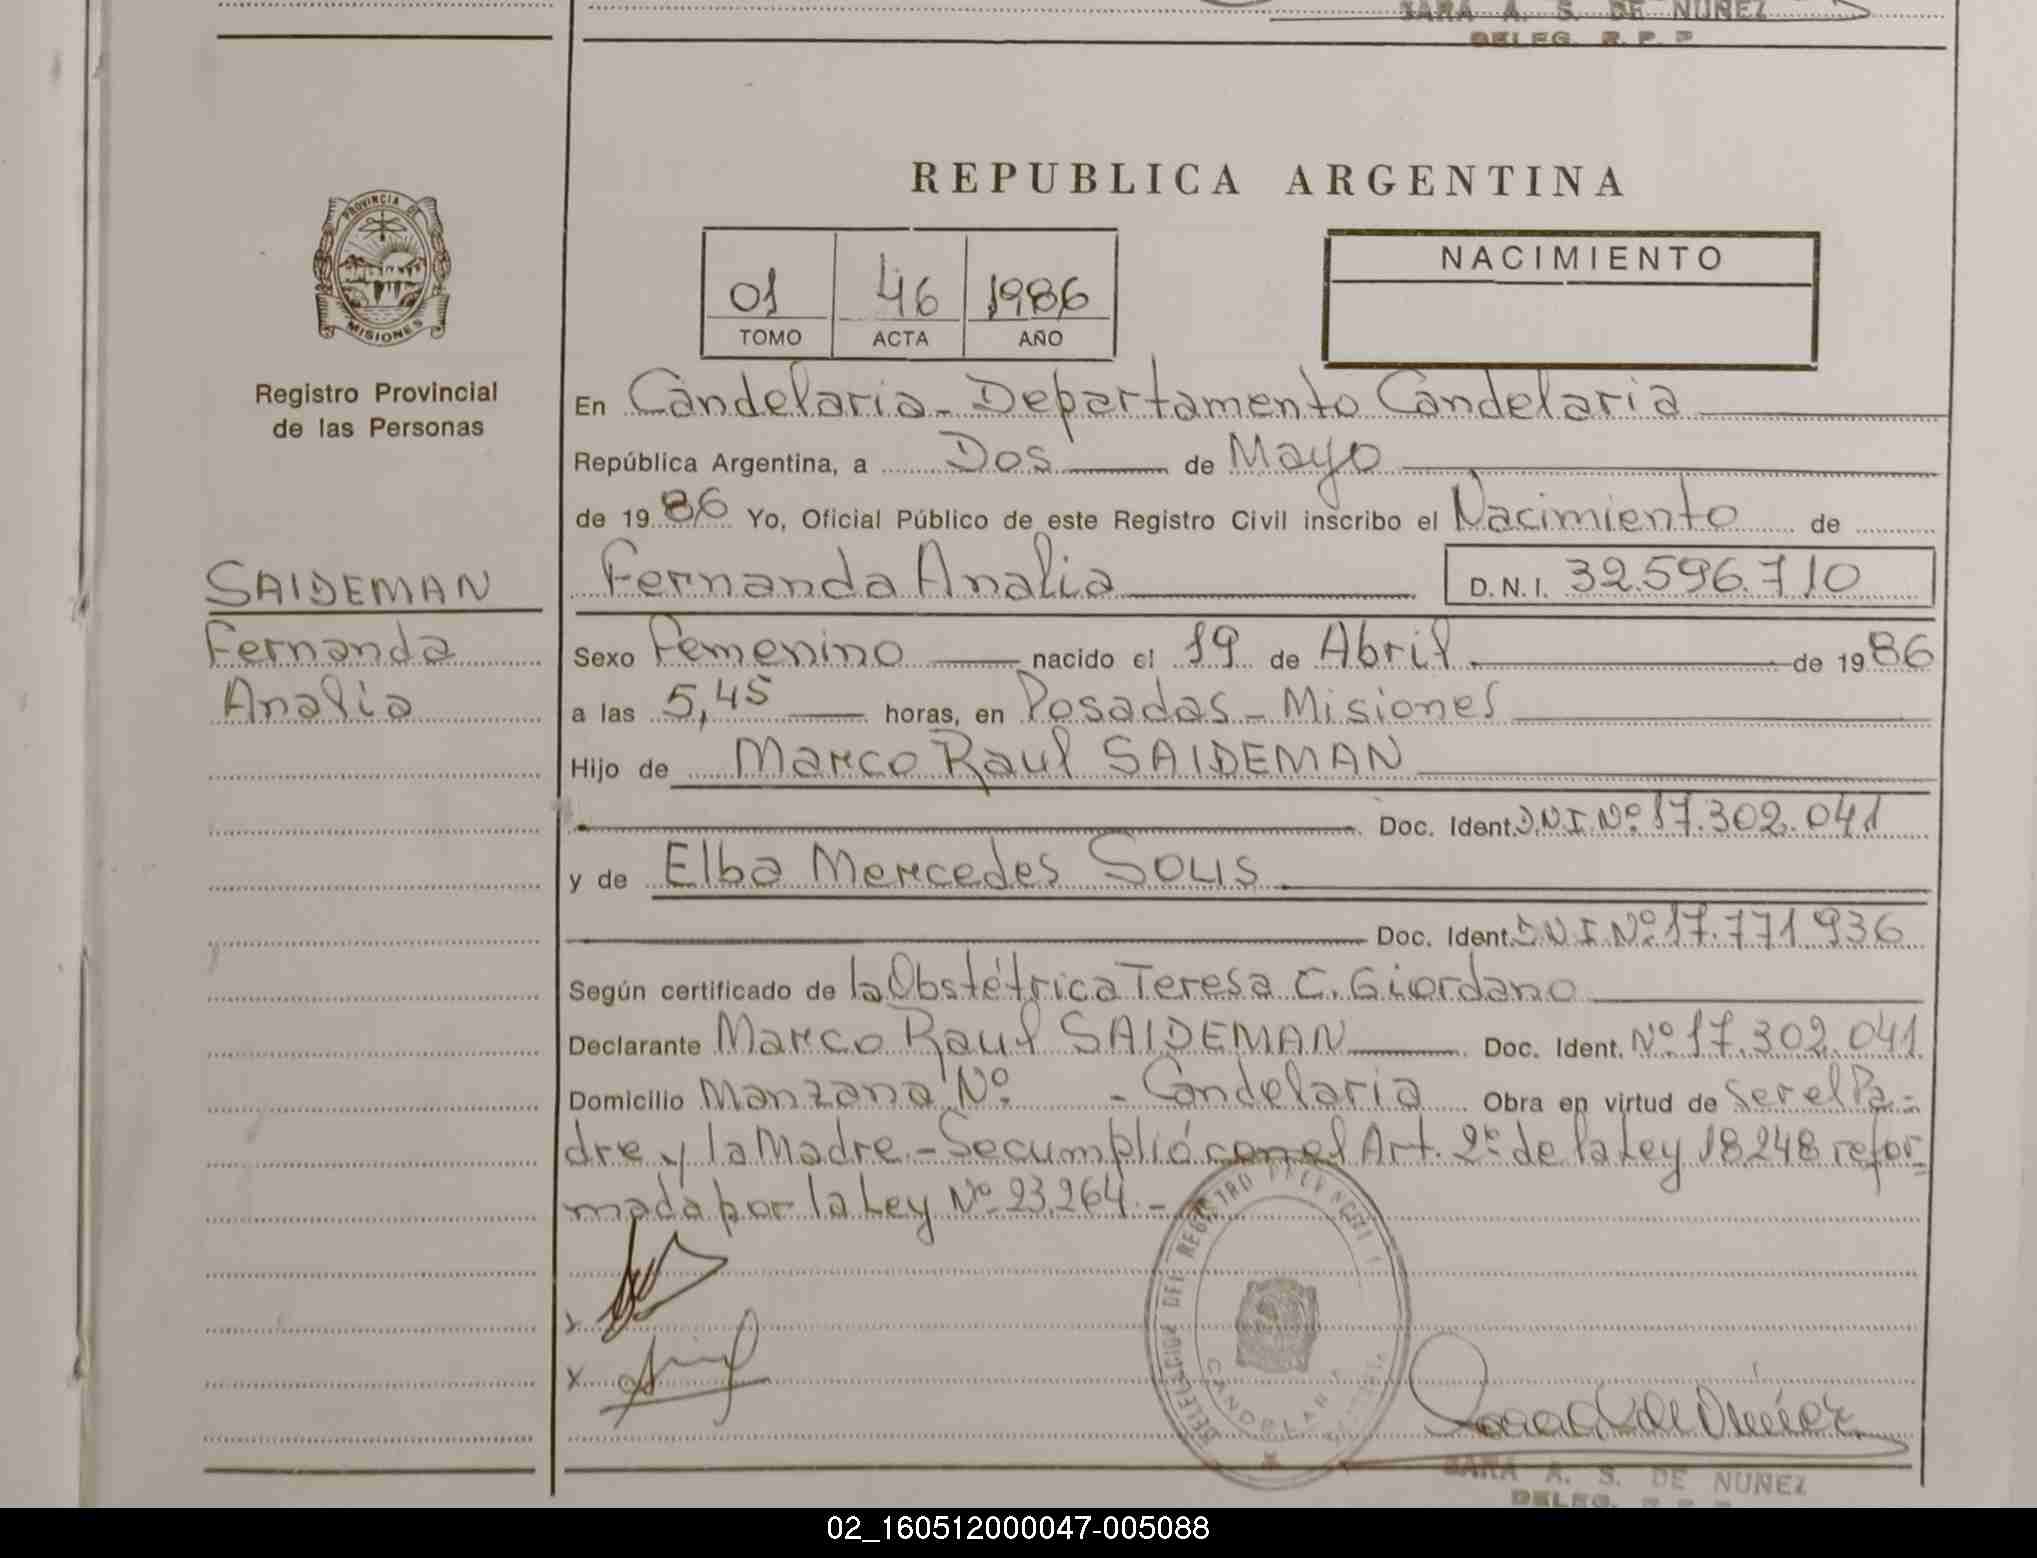 SARA A. S. DE NUÑEZ
DELEG. R. P. P
PROVINCIA DE
MISIONES
Registro Provincial
de las Personas
SAIDEMAN
Fernanda
Analia
REPUBLICA ARGENTINA
01 46 1986
TOMO ACTA AÑO
NACIMIENTO
En Candelaria - Departamento Candelaria
República Argentina, a Dos de Mayo
de 1986 Yo, Oficial Público de este Registro Civil inscribo el Nacimiento de
Fernanda Analia D.N.I. 32.596.710
Sexo Femenino nacido el 19 de Abril de 1986
a las 5,45 horas, en Posadas - Misiones
Hijo de Marco Raul SAIDEMAN
Doc. Ident. D.N.I. Nº 17.302.041
y de Elba Mercedes SOLIS
Doc. Ident. D.N.I. Nº 17.771.936
Según certificado de la Obstétrica Teresa C. Giordano
Declarante Marco Raul SAIDEMAN Doc. Ident. Nº 17.302.041
Domicilio Manzana Nº - Candelaria Obra en virtud de ser el Pa-
dre y la Madre - Se cumplió con el Art. 2º de la Ley 18.248 refor-
mada por la Ley Nº 23.264.-
x
x
DELEGACION DEL REGISTRO PROVINCIAL
CANDELARIA
SARA A. S. DE NUÑEZ
DELEG. R. P. P
02_160512000047-005088